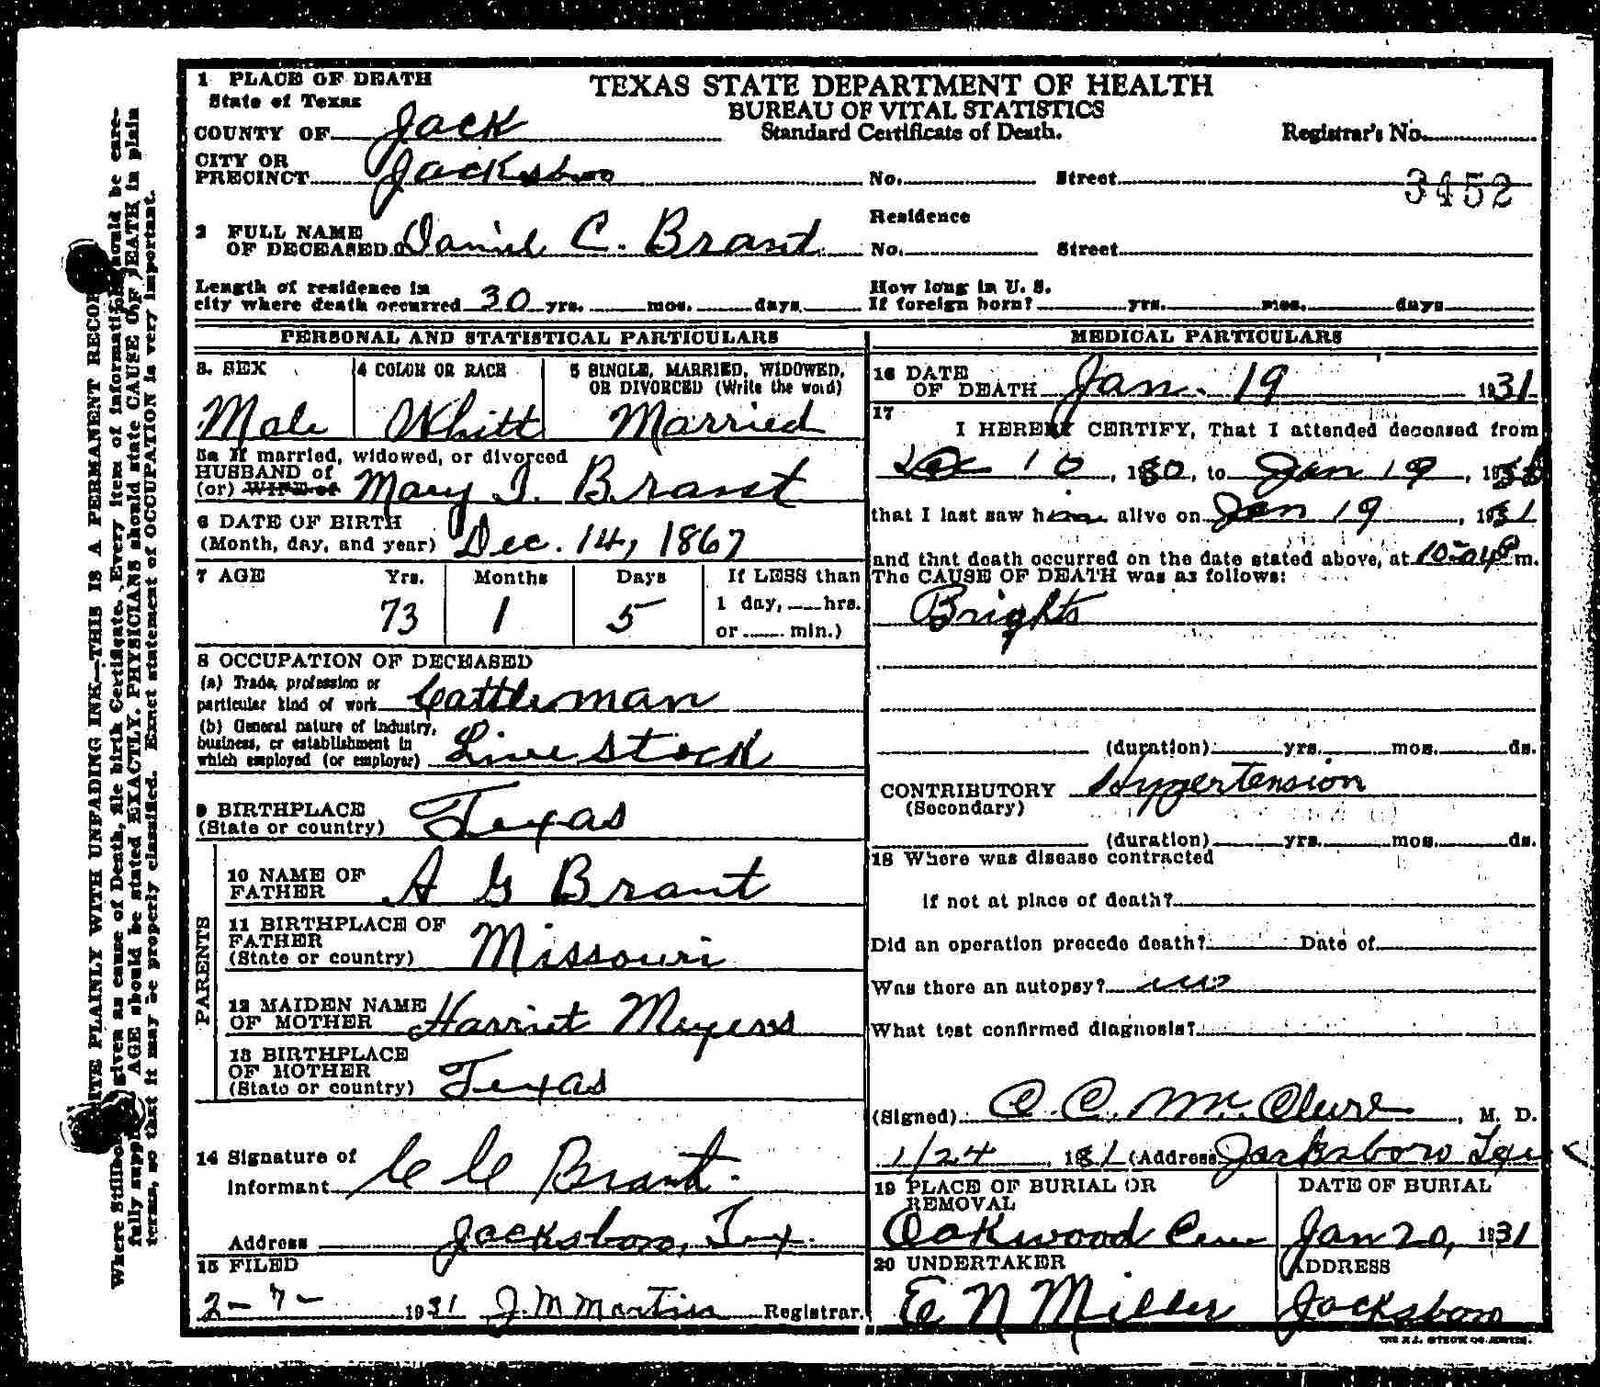 TEXAS STATE DEPARTMENT OF HEALTH
BUREAU OF VITAL STATISTICS
Standard Certificate of Death.
Registrar's No.
3452
1 PLACE OF DEATH
State of Texas
COUNTY OF Jack
CITY OR PRECINCT Jacksboro
No. Street
2 FULL NAME OF DECEASED Daniel C. Brant
Residence
No. Street
Length of residence in
city where death occurred 30 yrs. mos. days.
How long in U. S.
If foreign born? yrs. mos. days
PERSONAL AND STATISTICAL PARTICULARS
3. SEX
Male
4 COLOR OR RACE
Whitt
5 SINGLE, MARRIED, WIDOWED,
OR DIVORCED (Write the word)
Married
5a If married, widowed, or divorced
HUSBAND of
(or) WIFE of Mary J. Brant
6 DATE OF BIRTH
(Month, day, and year) Dec. 14, 1867
7 AGE Yrs. Months Days If LESS than
73 1 5 1 day, hrs.
or min.)
8 OCCUPATION OF DECEASED
(a) Trade, profession or
particular kind of work Cattleman
(b) General nature of industry,
business, or establishment in
which employed (or employer) Live Stock
9 BIRTHPLACE
(State or country) Texas
PARENTS
10 NAME OF
FATHER A G Brant
11 BIRTHPLACE OF
FATHER
(State or country) Missouri
12 MAIDEN NAME
OF MOTHER Harriet Meyers
13 BIRTHPLACE
OF MOTHER
(State or country) Texas
14 Signature of
Informant C C Brant.
Address Jacksboro, Tex.
15 FILED
2-7- 1931 J. M Martin Registrar.
MEDICAL PARTICULARS
16 DATE
OF DEATH Jan. 19 1931
17
I HEREBY CERTIFY, That I attended deceased from
Dec 10, 1930, to Jan 19, 1931
that I last saw him alive on Jan 19, 1931
and that death occurred on the date stated above, at m.
The CAUSE OF DEATH was as follows:
Brights
(duration) yrs. mos. ds.
CONTRIBUTORY Hypertension
(Secondary)
(duration) yrs. mos. ds.
18 Where was disease contracted
if not at place of death?
Did an operation precede death? Date of
Was there an autopsy? no
What test confirmed diagnosis?
(Signed) C. C. McClure, M. D.
1/24, 1931 (Address Jacksboro Tex
19 PLACE OF BURIAL OR
REMOVAL
Oakwood Cem
DATE OF BURIAL
Jan 20, 1931
20 UNDERTAKER
E N Miller
ADDRESS
Jacksboro
WRITE PLAINLY WITH UNFADING INK—THIS IS A PERMANENT RECORD
Where Stillborn given as cause of Death, file birth Certificate. Every item of information should be care-
fully supplied AGE should be stated EXACTLY. PHYSICIANS should state CAUSE OF DEATH in plain
terms, so that it may be properly classified. Exact statement of OCCUPATION is very important.